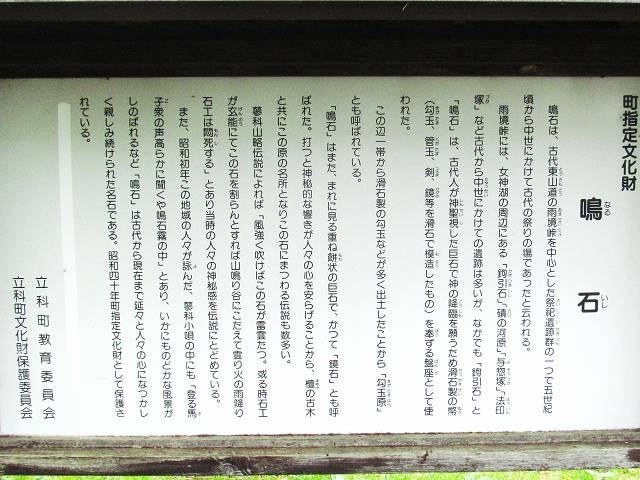 町指定文化財
鳴石
なる いし
鳴石は、古代東山道の雨境峠を中心とした祭祀遺跡群の一つで五世紀
頃から中世にかけて古代の祭りの場であつたと云われる。
雨境峠には、女神湖の周辺にある「鉤引石」「磧の河原」「与惣塚」「法印
塚」など古代から中世にかけての遺跡は多いが、なかでも「鉤引石」と
「鳴石」は、古代人が神聖視した巨石で神の降臨を願うため滑石製の幣
(勾玉、管玉、剣、鏡等を滑石で模造したもの)を奉ずる盤座として使
われた。
この辺一帯から滑石製の勾玉などが多く出土したことから「勾玉原」
とも呼ばれている。
「鳴石」はまた、まれに見る重ね餅状の巨石で、かつて「鏡石」とも呼
ばれた。打つと神秘的な響きが人々の心を安らげることから、檀の古木
と共にこの原の名所となりこの石にまつわる伝説も数多い。
蓼科山略伝説によれば「風強く吹けばこの石が雷雲たつ。或る時石工
が玄能にてこの石を割らんとすれば山鳴り谷にこたえて雲り火の雨降り
石工は悶死する」とあり当時の人々の神秘感を伝説にとどめている。
また、昭和初年この地域の人々が詠んだ、蓼科小唄の中にも「登る馬
子衆の声高らかに聞くや鳴石霧の中」とあり、いかにものどかな風景が
しのばれるなど「鳴石」は古代から現在まで延々と人々の心になつかし
く親しみ続けられた名石である。昭和四十年町指定文化財として保護さ
れている。
立科町教育委員会
立科町文化財保護委員会